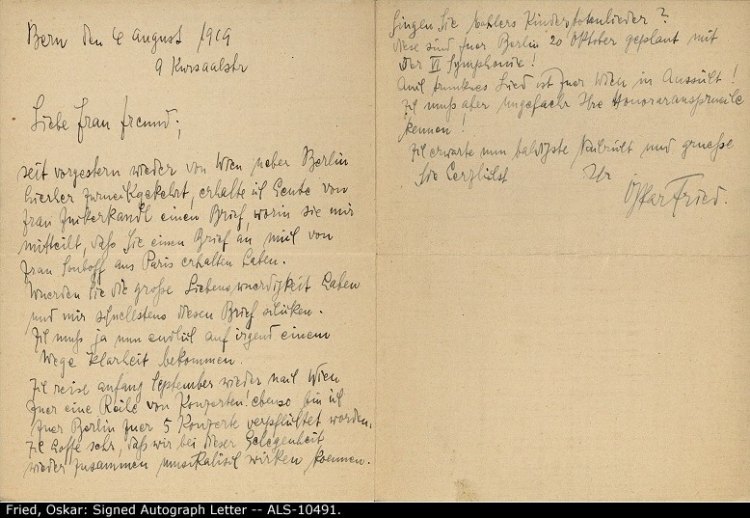 Bern den 4 August 1919
9 Kursaalstr
Liebe Frau Freund;
seit vorgestern wieder von Wien ueber Berlin
hierher zurueckgekehrt, erhalte ich heute von
Frau Zuckerkandl einen Brief, worin sie mir
mitteilt, daß Sie einen Brief an mich von
Frau aus Paris erhalten haben.
Wuerden Sie die große Liebenswuerdigkeit haben
und mir schnellstens diesen Brief schicken.
Ich muss ja nun endlich auf irgend einem
Wege Klarheit bekommen.
Ich reise anfang September wieder nach Wien
fuer eine Reihe von Konzerten! ebenso bin ich
fuer Berlin fuer 5 Konzerte verpflichtet worden.
Ich hoffe sehr, daß wir bei dieser Gelegenheit
wieder zusammen musikalisch wirken koennen.
Singen Sie Mahlers Kindertotenlieder?
diese sind fuer Berlin 20 Oktober geplant mit
der VI Symphonie!
Auch Lied ist fuer Wien in Aussicht!
Ich muß aber ungefaehr Ihre Honoraransprueche
kennen!
Ich erwarte nun baldigste Nachricht und gruesse
Sie herzlichst Ihr
Oskar Fried.
Fried, Oskar: Signed Autograph Letter -- ALS-10491.